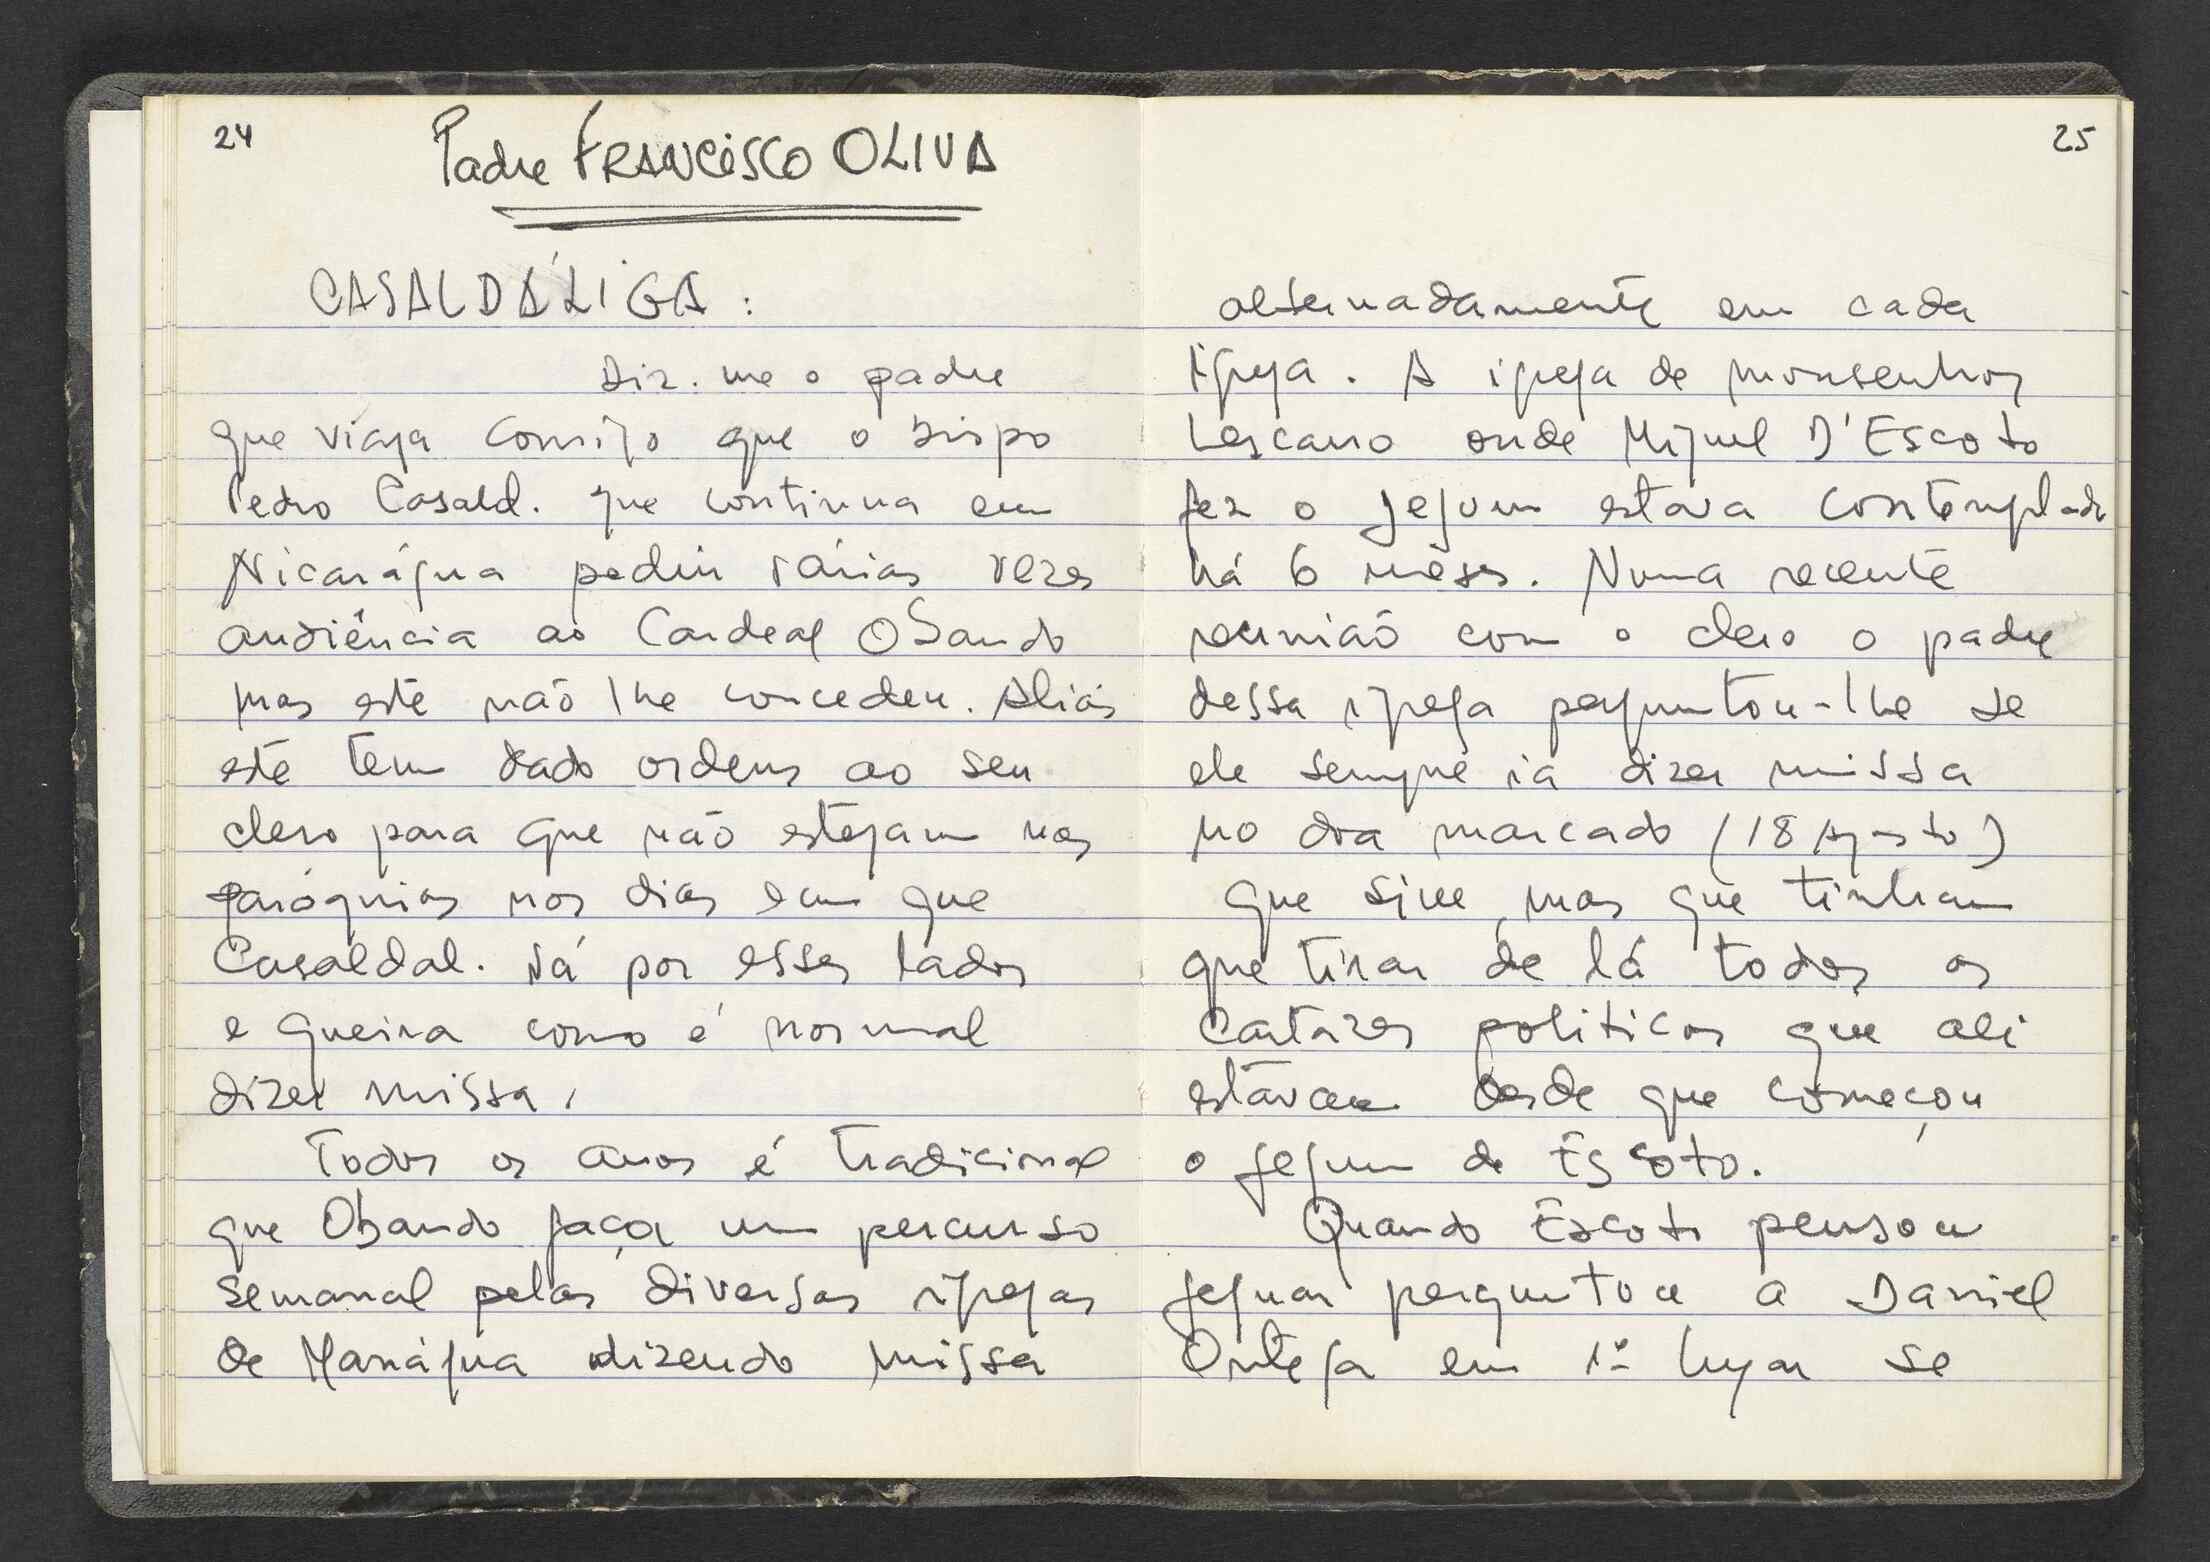 24
Padre FRANCISCO OLIVA
CASALDÁLIGA:
Diz-me o padre
que viaja comigo que o bispo
Pedro Casald. que continua em
Nicarágua pediu várias vezes
audiência ao Cardeal Obando
mas este não lhe concedeu. Aliás
este tem dado ordens ao seu
clero para que não estejam nas
paróquias nos dias em que
Casaldal. vá por esses lados
e queira como é normal
dizer missa.
Todos os anos é tradicional
que Obando faça um percurso
semanal pelas diversas igrejas
de Manágua dizendo missa
25
alternadamente em cada
igreja. A igreja de monsenhor
Lescano onde Miguel D'Escoto
fez o jejum estava contemplada
há 6 meses. Numa recente
reunião com o clero o padre
dessa igreja perguntou-lhe se
ele sempre ia dizer missa
no dia marcado (18 Agosto)
que sim, mas que tinham
que tirar de lá todos os
cartazes politicos que ali
estavam desde que começou
o jejum de Escoto.
Quando Escoto pensou
jejuar perguntou a Daniel
Ortega em 1º lugar se